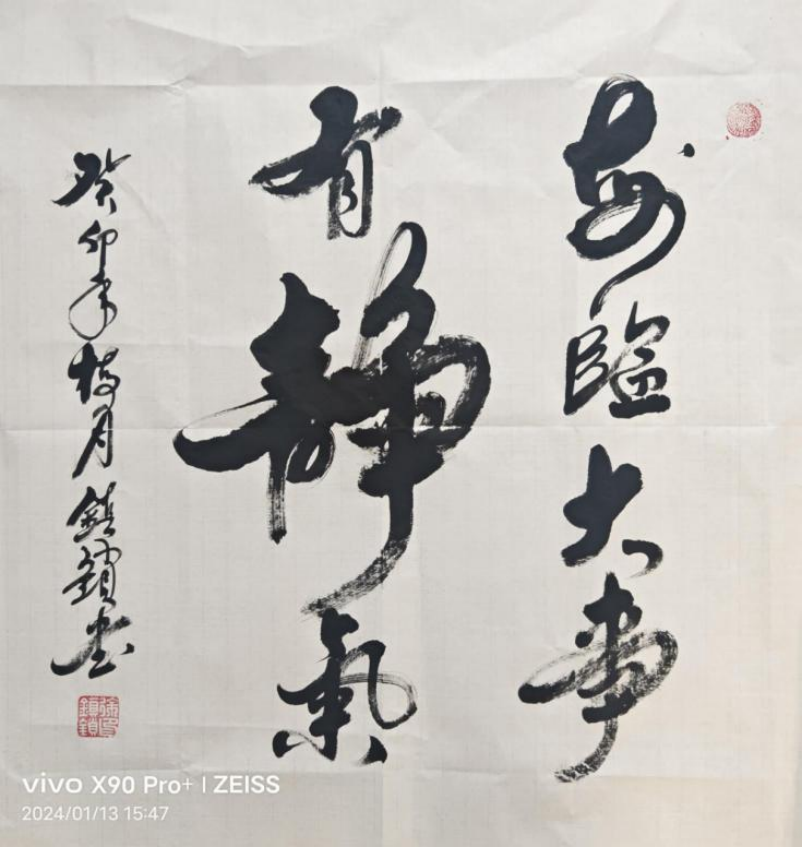 每臨大事
有靜氣
癸卯年梅月鎮鎖書
vivo X90 Pro+ | ZEISS
2024/01/13 15:47